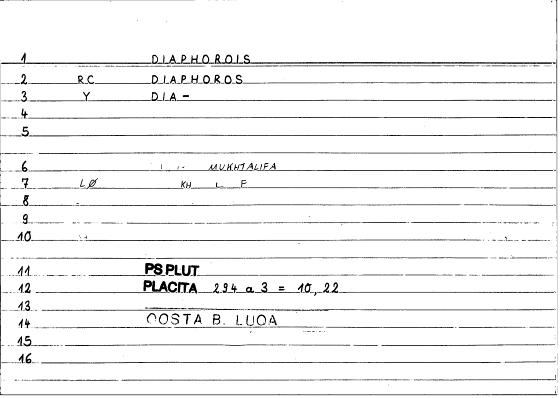 1 DIAPHOROIS
2 RC DIAPHOROS
3 Y DIA-
4
5
6 MUKHTALIFA
7 LØ KH L F
8
9
10
11 PS PLUT
12 PLACITA 294 a 3 = 10, 22
13
14 COSTA B. LUQA
15
16